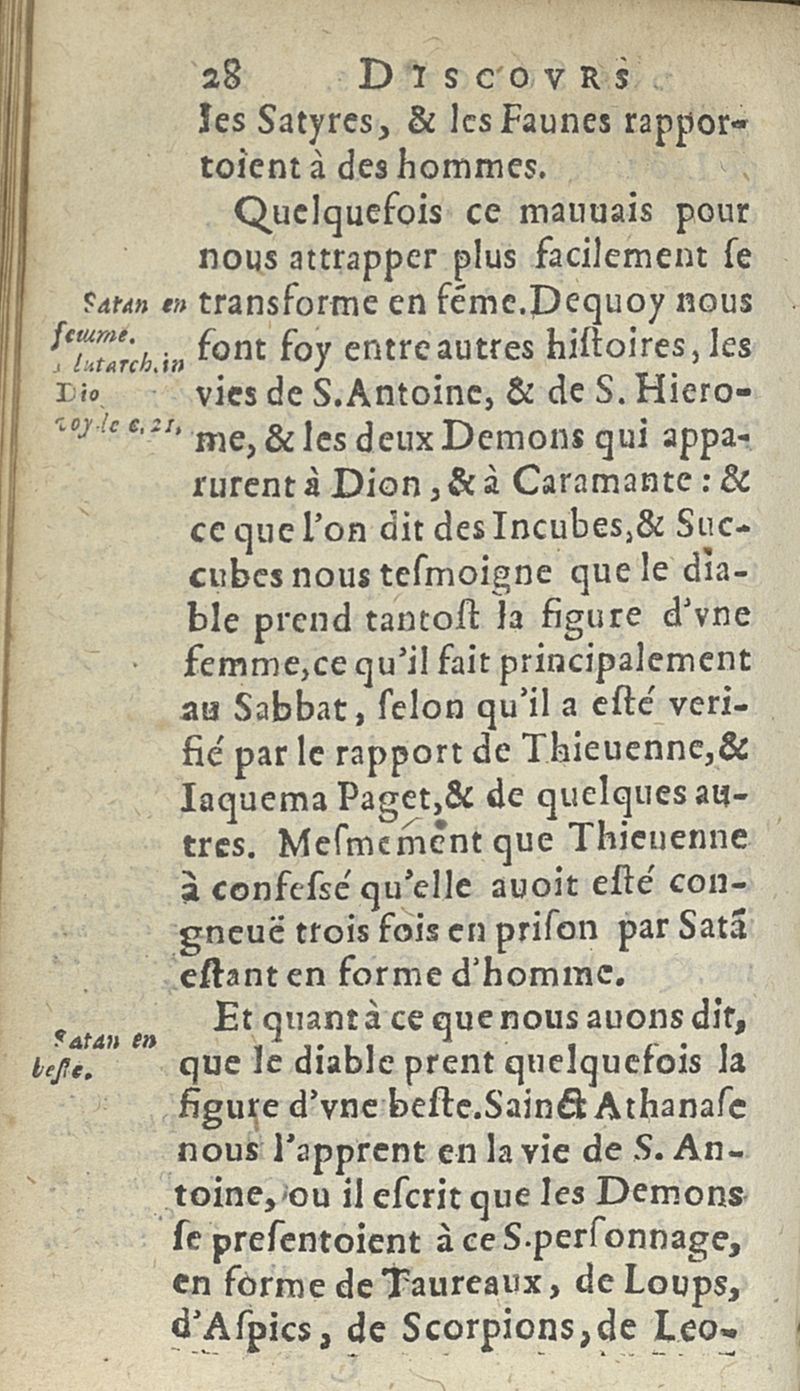 28 DISCOVRS
les Satyres, & les Faunes rappor-
toient à des hommes.
Quelquefois ce mauuais pour
nous attrapper plus facilement ſe
Satan en
ſemme.
lutarch.in
Dio
c. 21,
transforme en fẽme.Dequoy nous
font foy entre autres hiſtoires, les
vies de S.Antoine, & de S. Hiero-
me, & les deux Demons qui appa-
rurent à Dion, & à Caramante : &
ce que l'on dit des Incubes,& Suc-
cubes nous teſmoigne que le dia-
ble prend tantoſt la figure d'vne
femme,ce qu'il fait principalement
au Sabbat, ſelon qu'il a eſté veri-
fié par le rapport de Thieuenne,&
Iaquema Paget,& de quelques au-
tres. Meſmement que Thieuenne
à confeſsé qu'elle auoit eſté con-
gneuë trois fois en priſon par Satã
eſtant en forme d'homme.
Et quant à ce que nous auons dit,
Satan en
beſte.
que le diable prent quelquefois la
figure d'vne beſte.Sainct Athanaſe
nous l'apprent en la vie de S. An-
toine, ou il eſcrit que les Demons
ſe preſentoient à ce S.perſonnage,
en forme de Taureaux, de Loups,
d'Aſpics, de Scorpions,de Leo-